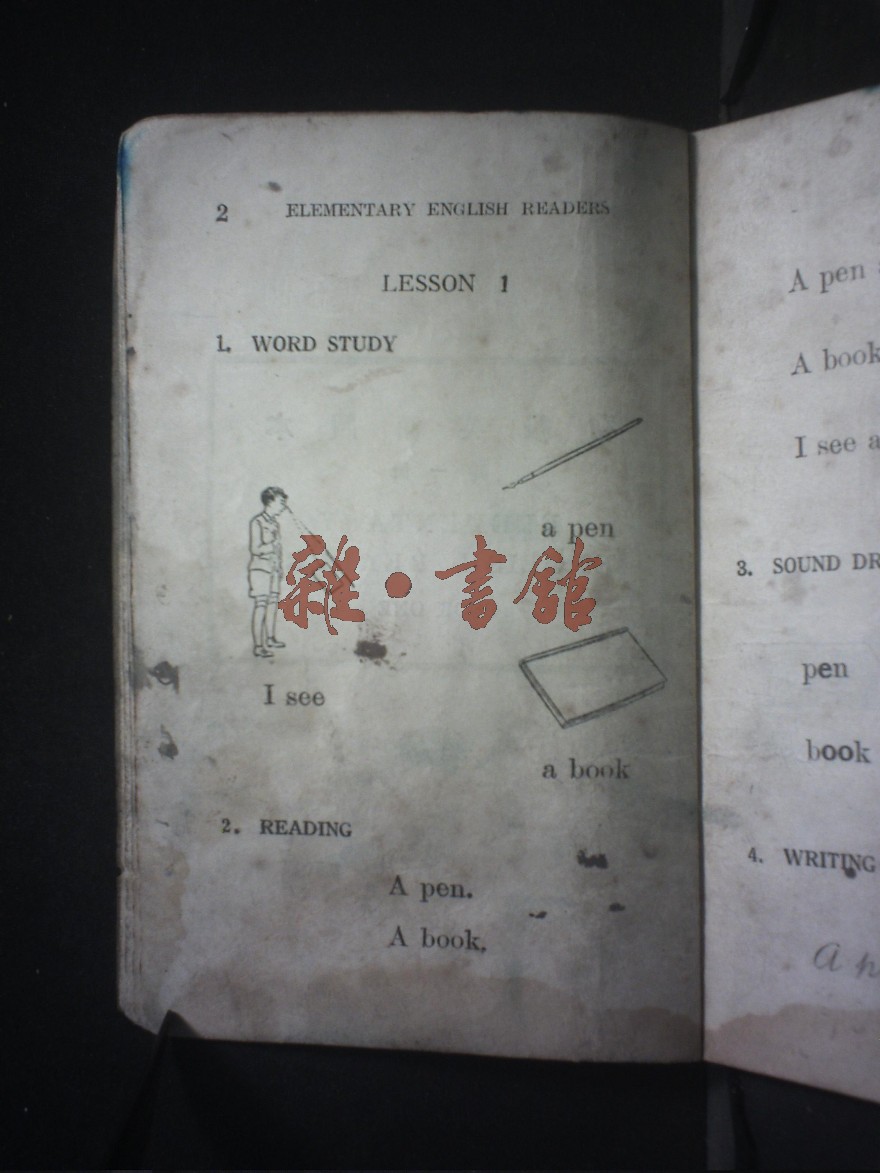 2 ELEMENTARY ENGLISH READERS
LESSON 1
1. WORD STUDY
a pen
雜·書館
I see
a book
2. READING
A pen.
A book.
A pen
A book
I see a
3. SOUND DR
pen
book
4. WRITING
a p